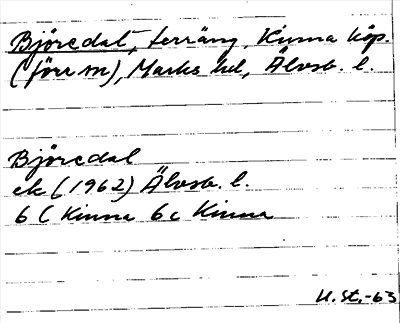 Björedal, terräng, Kinna köp.
(förr sn), Marks hd, Älvsb. l.
Björedal
ek (1962) Älvsb. l.
6 C Kinna 6 c Kinna
U. St. -63